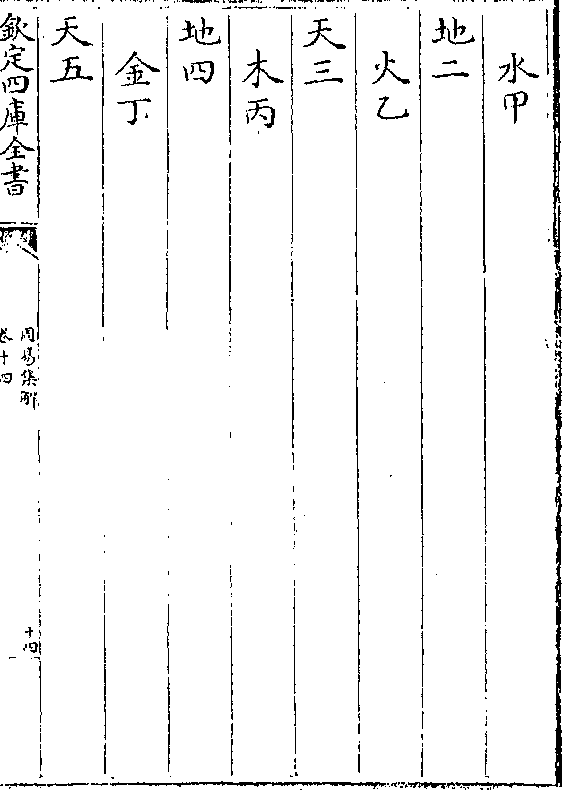 水甲
地二
火乙
天三
木丙
地四
金丁
天五
欽定四庫全書
周易集解
卷十四
十四